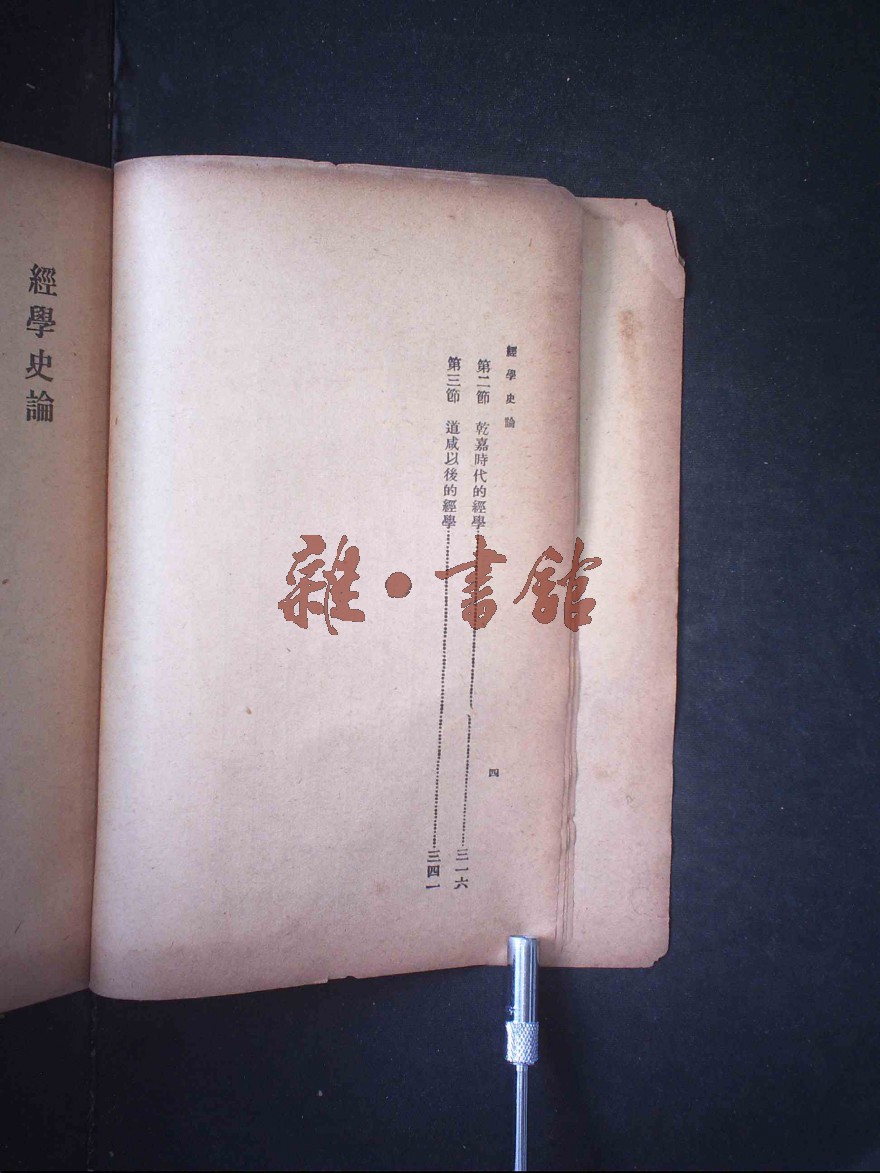 經學史論
第二節　乾嘉時代的經學……三一六
第三節　道咸以後的經學……三四一
四
經學史論
雜·書館